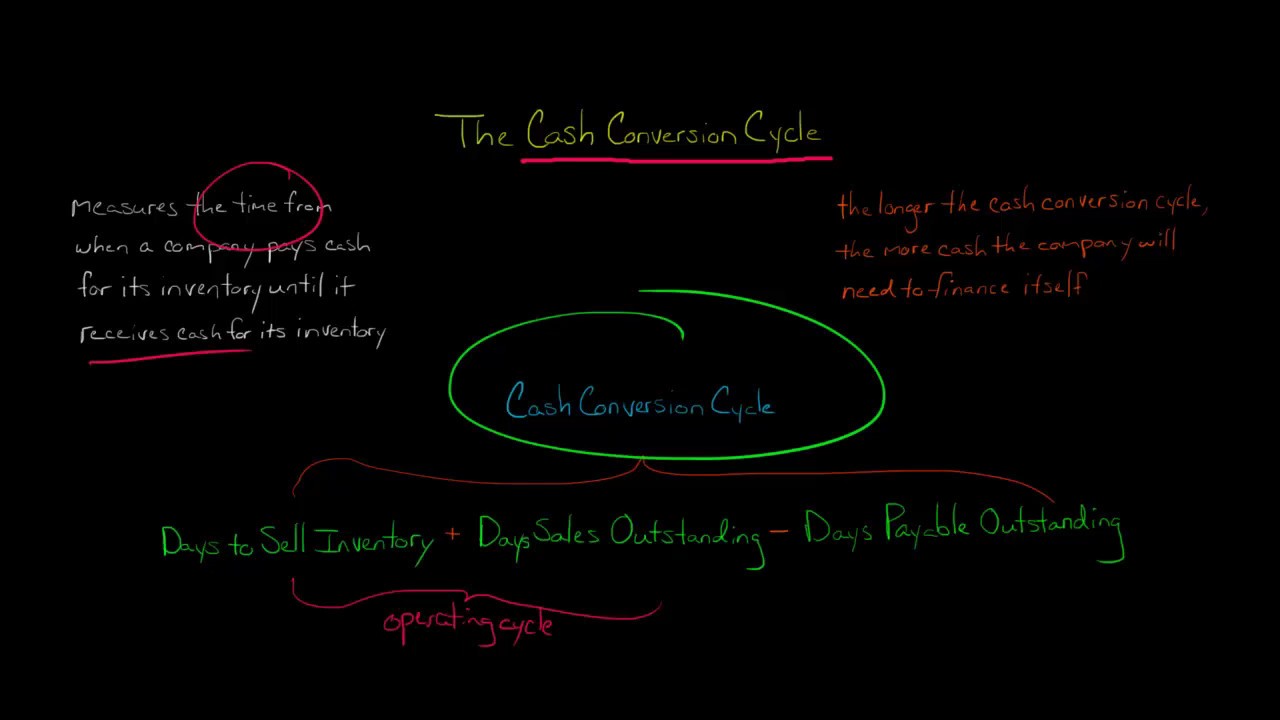 The Cash Conversion Cycle
Measures the time from
when a company pays cash
for its inventory until it
receives cash for its inventory
the longer the cash conversion cycle,
the more cash the company will
need to finance itself
Cash Conversion Cycle
Days to Sell Inventory + Days Sales Outstanding - Days Payable Outstanding
operating cycle